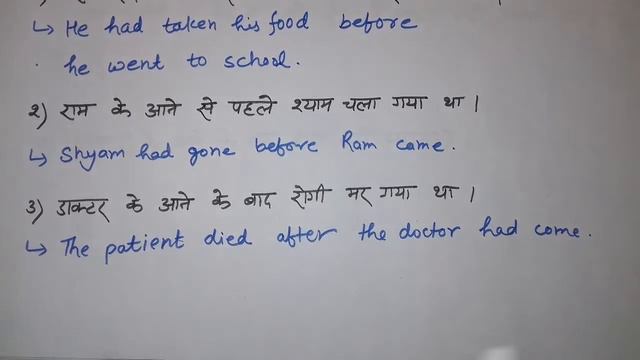 ↳ He had taken his food before
he went to school.
२) राम के आने से पहले श्याम चला गया था।
↳ Shyam had gone before Ram came.
३) डाक्टर के आने के बाद रोगी मर गया था।
↳ The patient died after the doctor had come.